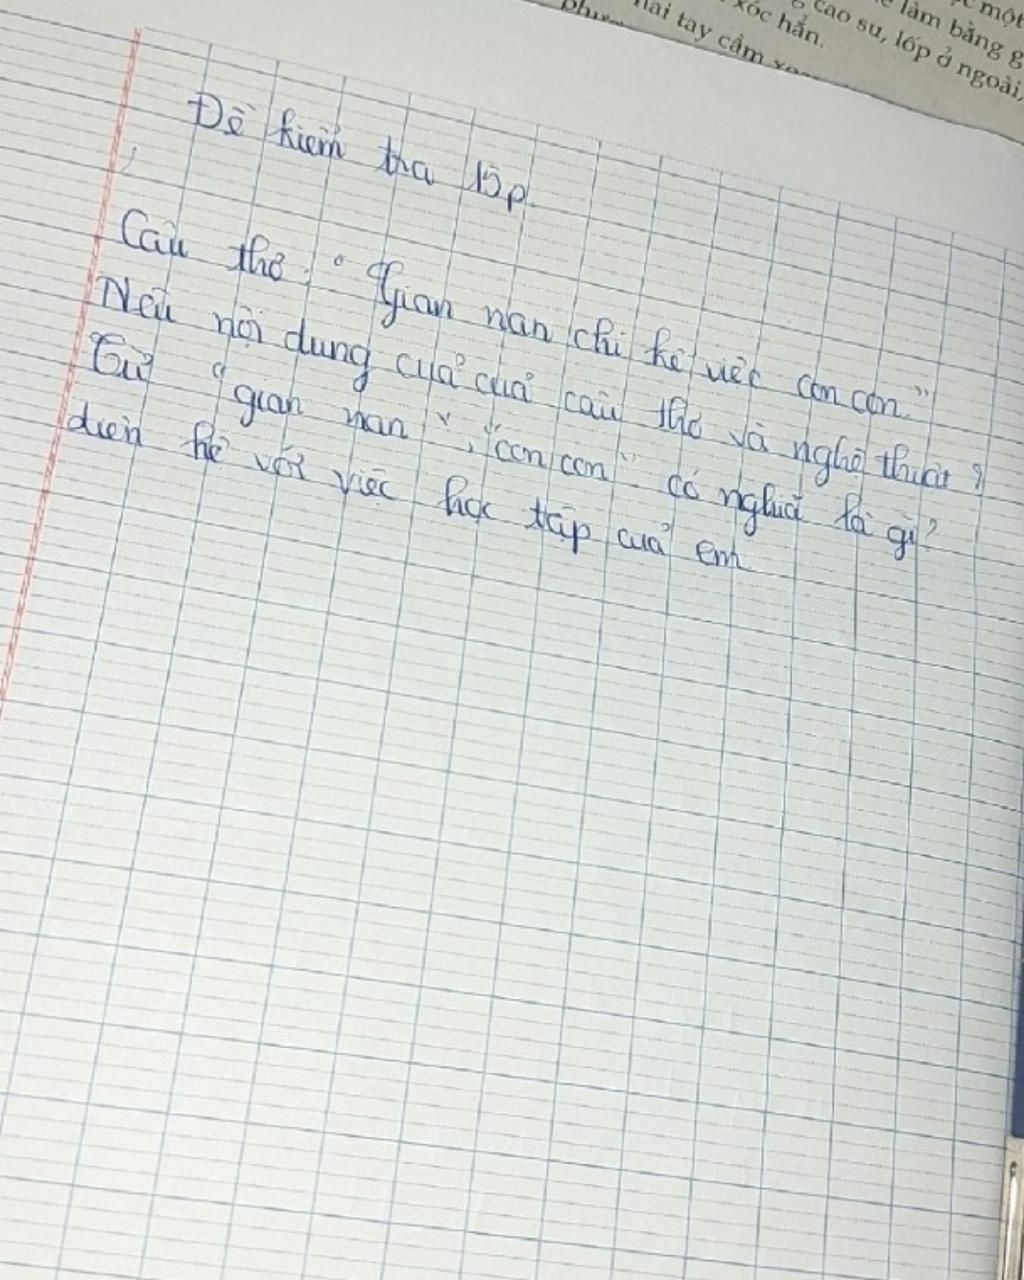 một
làm bằng g
cao su, lốp ở ngoài,
xóc hẳn.
hai tay cầm
Đề kiểm tra lớp
Câu thơ: "Gian nan chi kể việc con con."
Nêu nội dung cuả cuả câu thơ và nghệ thuật?
Từ "gian nan", "con con" có nghiã là gì?
diên hê với việc học tập cuả em